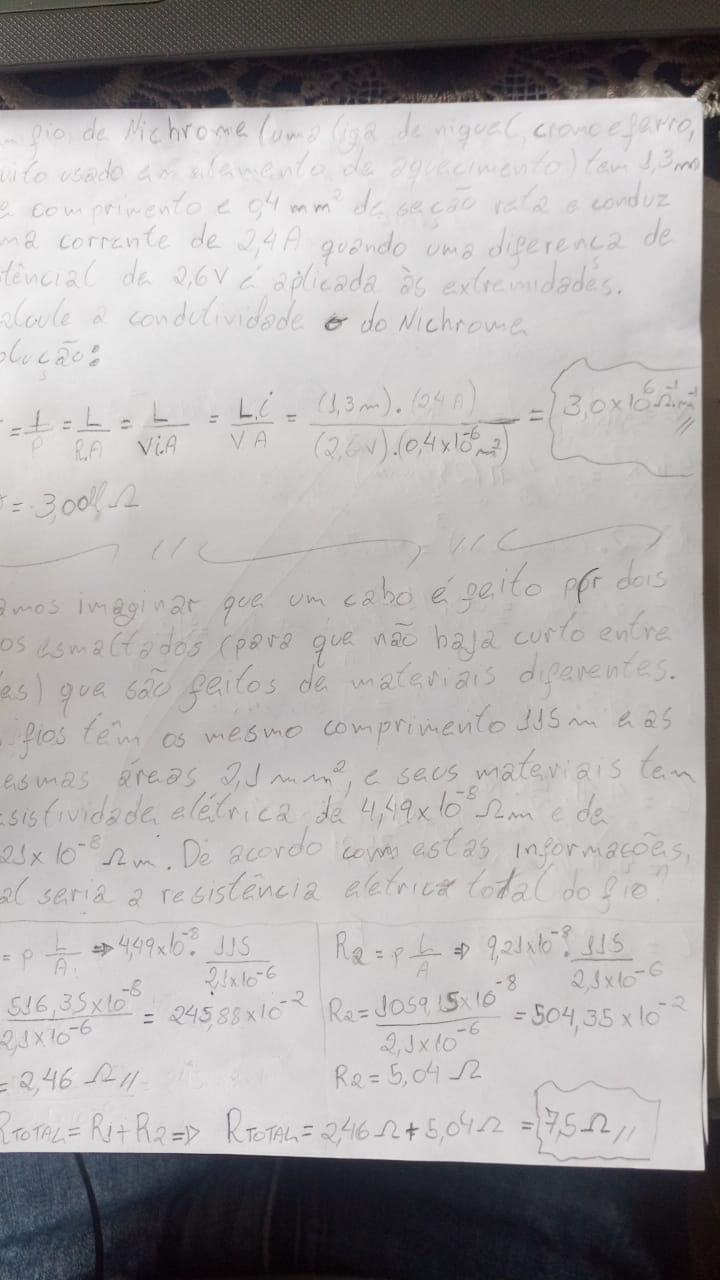 fio de Nichrome (uma liga de niquel, cromo e farro,
uito usado em elemento de aquecimento) tem 1,3m
comprimento e 0,4 mm² de seção reta e conduz
ma corrente de 2,4A quando uma diferença de
têncial de 2,6V é aplicada às extremidades.
alcule a condutividade σ do Nichrome
olução:
= 1/ρ = L/R.A = L/Vi.A = L.i/V A = (1,3m).(2,4A)/(2,6V).(0,4x10⁻⁶m²) = 3,0x10⁶Ω⁻¹.m⁻¹ //
= 3,00 Ω
amos imaginar que um cabo é feito por dois
os esmaltados (para que não haja curto entre
es) que são feitos de materiais diferentes.
fios têm os mesmo comprimento 115m e as
esmas áreas 2,1mm², e seus materiais tem
sistividade elétrica de 4,49x10⁻⁸Ωm e de
21x10⁻⁸Ωm. De acordo com estas informações,
al seria a resistência eletrica total do fio?
= ρ L/A. ⇒ 4,49x10⁻⁸. 115/2,1x10⁻⁶
516,35x10⁻⁸/2,1x10⁻⁶ = 245,88x10⁻²
= 2,46 Ω //
R2 = ρ L/A ⇒ 9,21x10⁻⁸. 115/2,1x10⁻⁶
R2 = 1059,15x10⁻⁸/2,1x10⁻⁶ = 504,35x10⁻²
R2 = 5,04 Ω
RTOTAL = R1 + R2 => RTOTAL = 2,46Ω + 5,04Ω = 7,5Ω //